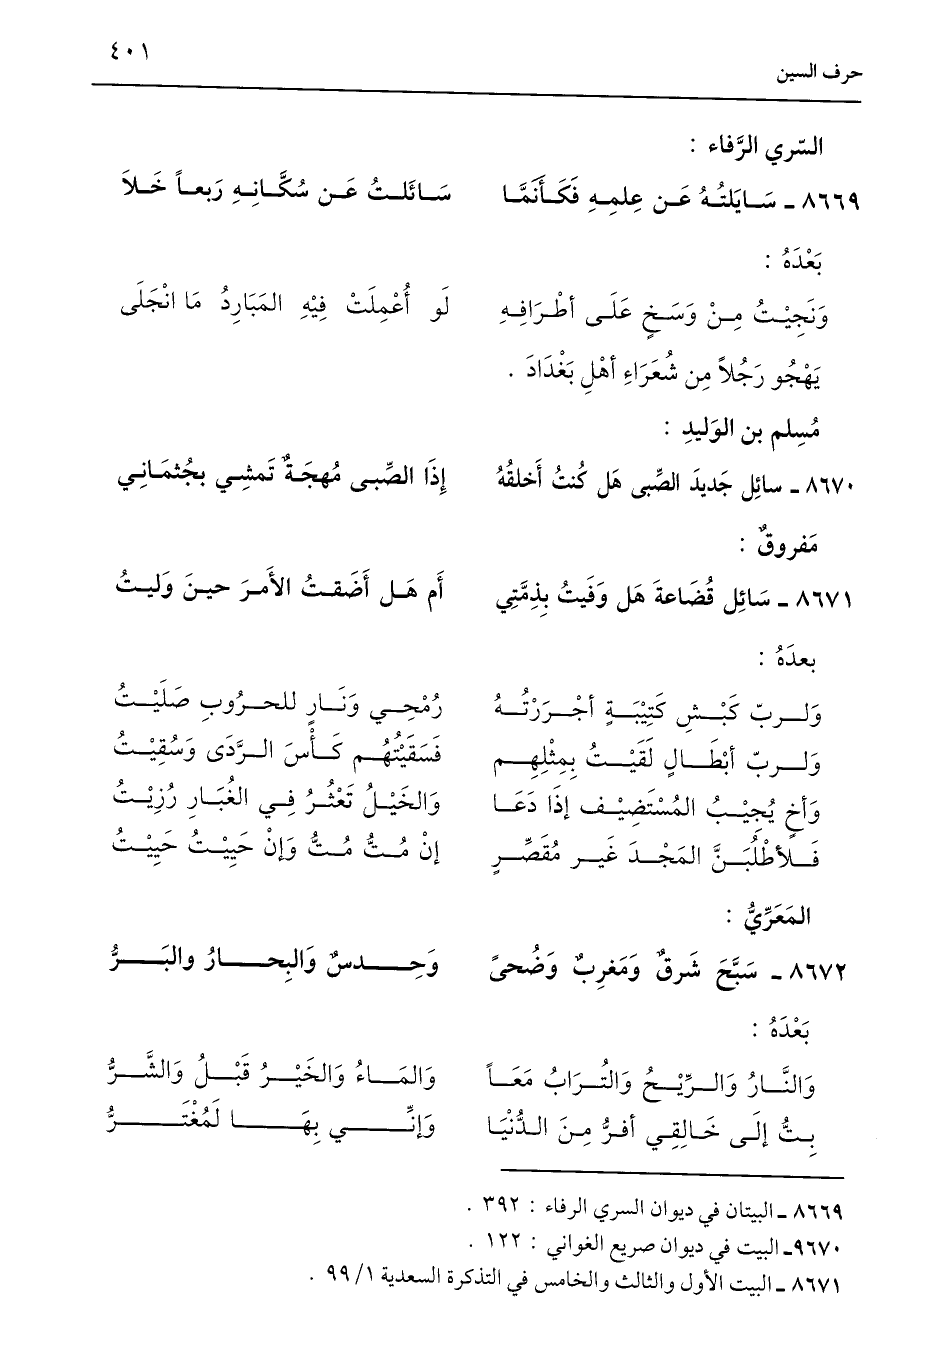 ٤٠١
حرف السين
السّري الرَّفاء :
٨٦٦٩ ـ سَـايَلتُـهُ عَـن عِلمِـهِ فَكَـأَنمَّـا سَـائَلـتُ عَـن سُكَّـانِـهِ رَبعـاً خَـلاَ
بَعْدَهُ :
وَنَجِيْـتُ مِـنْ وَسَـخٍ عَلَـى أطْـرَافِـهِ لَو أُعْمِلَتْ فِيْهِ المَبَارِدُ مَا انْجَلَى
يَهْجُو رَجُلاً مِن شُعَرَاءِ أهْلِ بَغْدَادَ .
مُسِلم بن الوَليدِ :
٨٦٧٠ ـ سائِل جَديدَ الصِّبى هَل كُنتُ أَخلقُهُ إِذَا الصِّبـى مُهجَـةٌ تَمشِـي بجُثمَـانِـي
مَفروقٌ :
٨٦٧١ ـ سَائِل قُضَاعةَ هَل وَفَيتُ بِذِمَّتِي أَم هَـل أَضَقـتُ الأَمـرَ حيـنَ وَليـتُ
بعدَهُ :
وَلـربّ كَبْـشِ كَتِيْبَـةٍ أجْـرَرْتُـهُ رُمْحِـي وَنَـارٍ للحـرُوبِ صَلَيْـتُ
وَلـربّ أبْطَـالٍ لَقَيْـتُ بِمِثْلِهِـم فَسَقَيْتُهُـم كَـأْسَ الـرَّدَى وَسُقِيْـتُ
وَأخٍ يُجِيْـبُ المُسْتَضِيْـفَ إذَا دَعَـا وَالخَيْـلُ تَعْثُـرُ فِـي الغُبَـارِ رُزِيْـتُ
فَـلأطْلُبَـنَّ المَجْـدَ غَيـر مُقَصِّـرٍ إنْ مُـتُّ مُـتُّ وَإنْ حَيِيْـتُ حَيِيْـتُ
المَعَرِّيُّ :
٨٦٧٢ ـ سَبَّحَ شَرقٌ وَمَغرِبٌ وَضُحىً وَحِـنـدسٌ وَالبِحـارُ والبَـرُّ
بَعْدَهُ :
وَالنَّـارُ وَالـرِّيْـحُ وَالتُـرَابُ مَعَـاً وَالمَـاءُ وَالخَيْـرُ قَبْـلُ وَالشَّـرُّ
بِـتُّ إلَى خَـالِقِي أفرُّ مِـنَ الـدُّنْيَا وَإنِّـي بِهَـا لَمُغْتَـرُّ
٨٦٦٩ ـ البيتان في ديوان السري الرفاء : ٣٩٢ .
٩٦٧٠ـ البيت في ديوان صريع الغواني : ١٢٢ .
٨٦٧١ ـ البيت الأول والثالث والخامس في التذكرة السعدية ١/ ٩٩ .